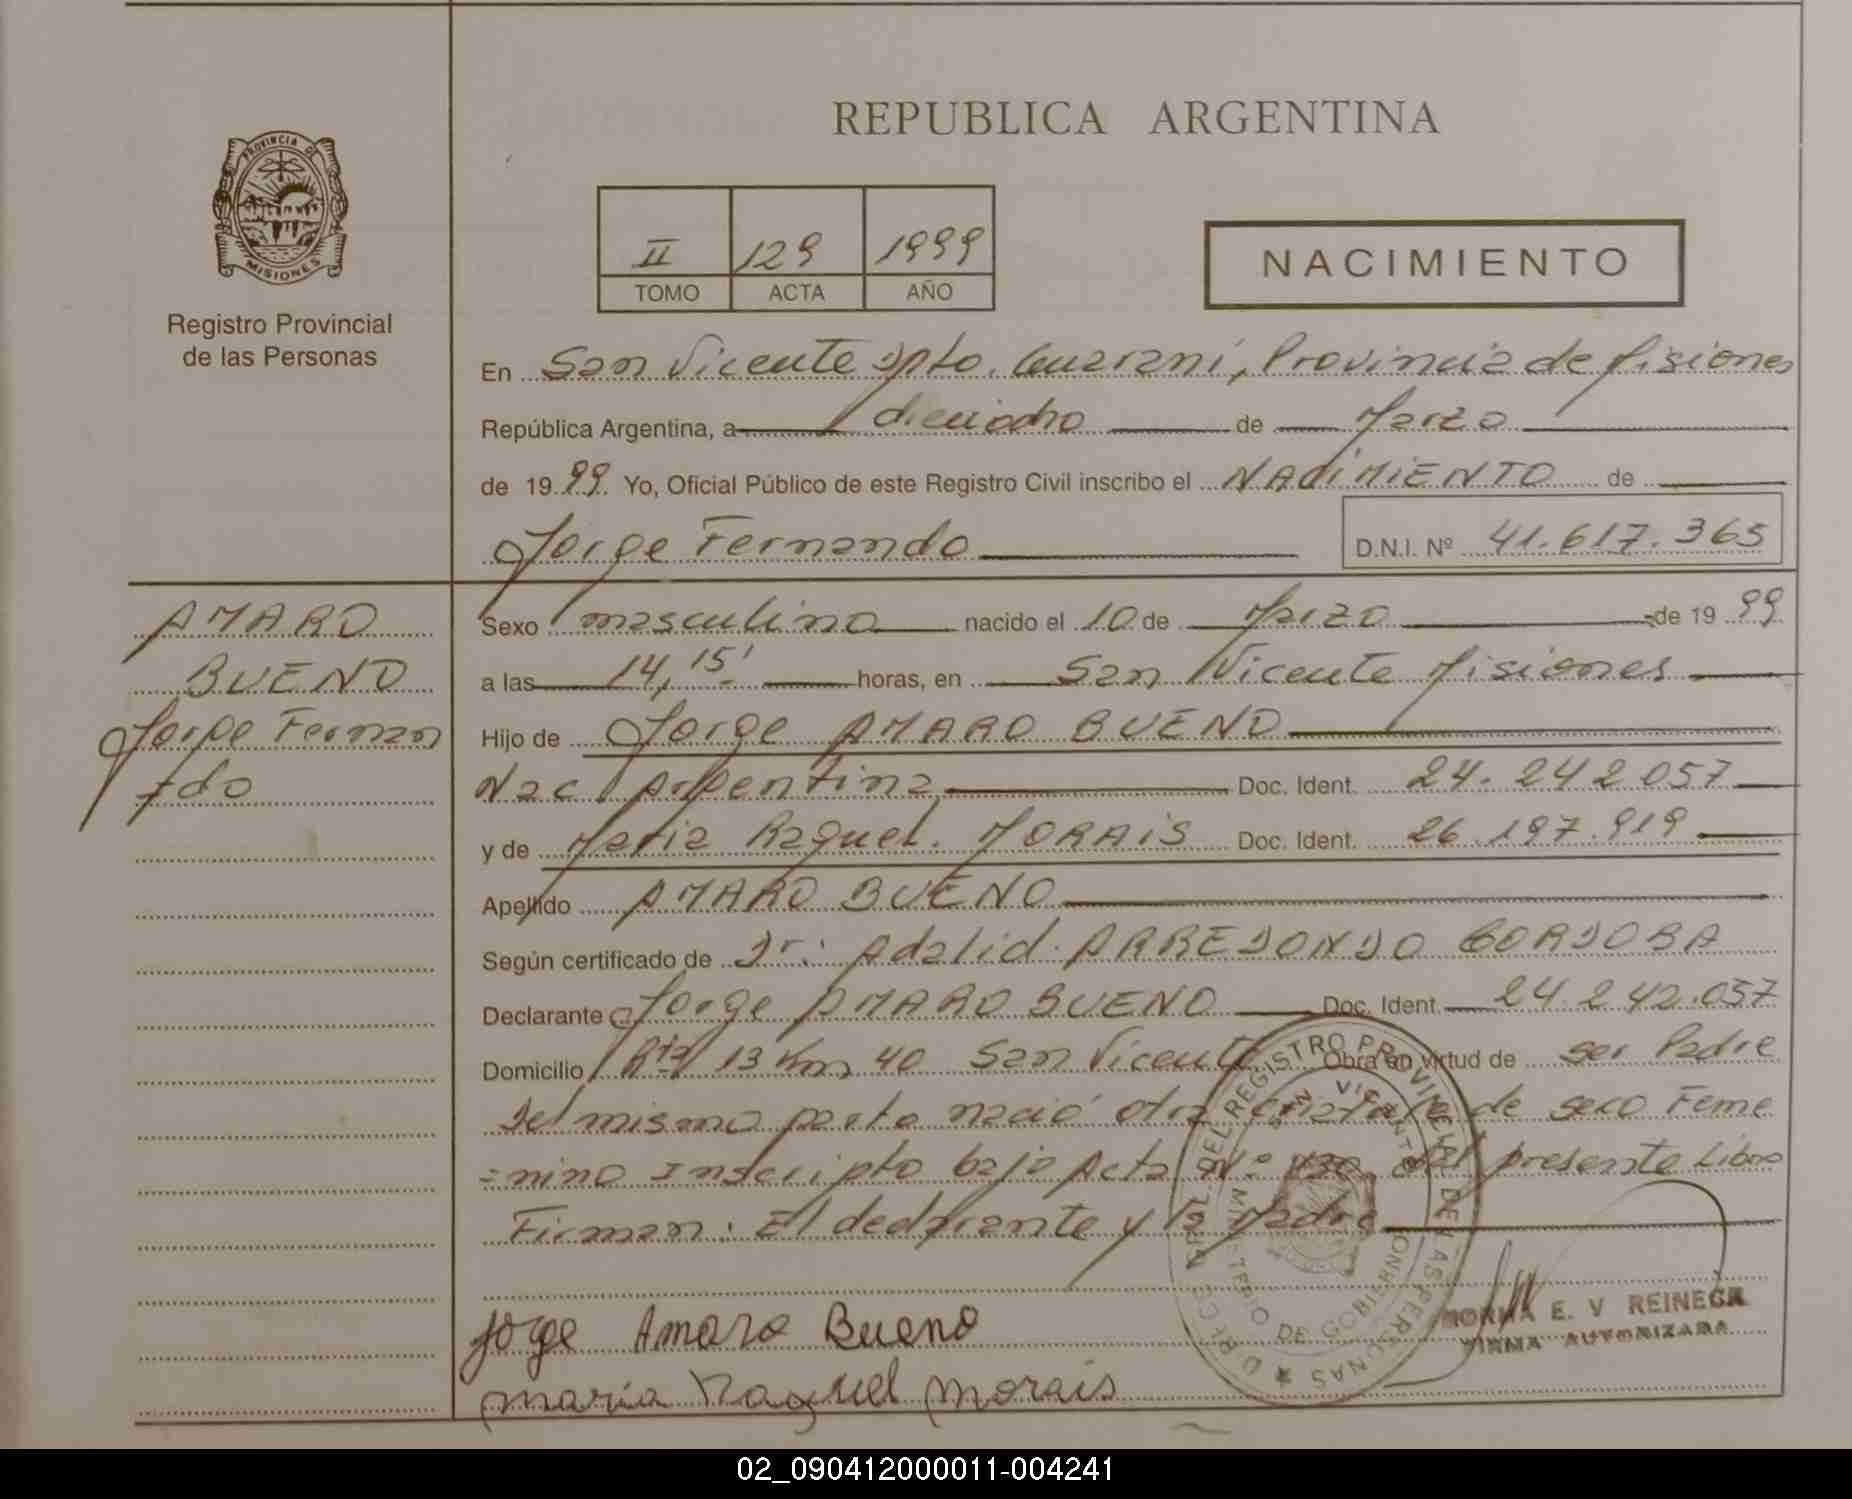 REPUBLICA ARGENTINA
PROVINCIA DE
MISIONES
Registro Provincial
de las Personas
II 129 1999
TOMO ACTA AÑO
NACIMIENTO
En San Vicente Dpto. Guaraní, Provincia de Misiones
República Argentina, a dieciocho de Marzo
de 1999 Yo, Oficial Público de este Registro Civil inscribo el NACIMIENTO de
Jorge Fernando D.N.I. Nº 41.617.365
AMARO
BUENO
Jorge Fernan
-do
Sexo masculino nacido el 10 de Marzo de 1999
a las 14,15' horas, en San Vicente Misiones
Hijo de Jorge AMARO BUENO
Nac Argentina Doc. Ident. 24.242.057
y de Maria Raquel. MORAIS Doc. Ident. 26.197.919
Apellido AMARO BUENO
Según certificado de Dr: Adalid ARREDONDO CORDOBA
Declarante Jorge AMARO BUENO Doc. Ident. 24.242.057
Domicilio Rta 13 Km 40 San Vicente Obra en virtud de ser Padre
Del mismo parto nació otra criatura de sexo Feme
=nino Inscripto bajo Acta Nº 130 del presente Libro
Firman: El declarante y la Madre
Jorge Amaro Bueno
maria Raquel morais
DIRECC. GRAL. DEL REGISTRO PROVINCIAL DE LAS PERSONAS
SAN VICENTE
MINISTERIO DE GOBIERNO
NORMA E. V REINECK
FIRMA AUTORIZADA
02_090412000011-004241